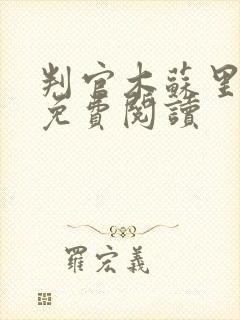 判官木蘇里
免費閱讀
羅宏義